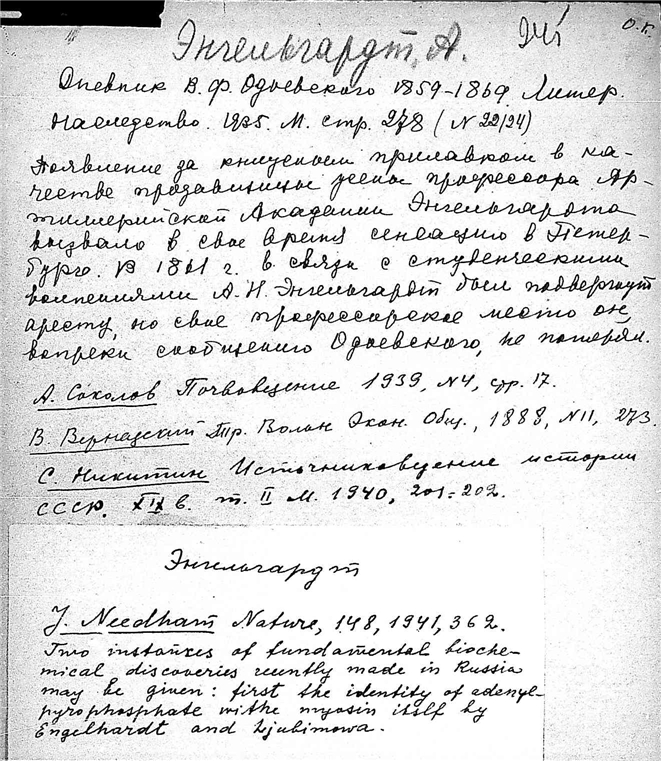 Энгельгардт, А.
О.К.
Дневник В. Ф. Одоевского 1859-1869. Литер.
Наследство. 1935. М. стр. 278 (N 22/24)
Появление за книжным прилавком в ка-
честве продавщицы жены профессора Ар-
тиллерийской Академии Энгельгардта
вызвало в свое время сенсацию в Петер-
бурге. В 1861 г. в связи с студенческими
волнениями А. Н. Энгельгардт был подвергнут
аресту, но свое профессорское место он,
вопреки сообщению Одоевского, не потерял.
А. Соколов Почвоведение 1939, N4, стр. 17.
В. Вернадский Тр. Вольн Экон. Общ., 1888, N11, 273.
С. Никитин Источниковедение истории
СССР. XIX в. т. II М. 1940, 201-202.
Энгельгардт
J. Needham Nature, 148, 1941, 362.
Two instances of fundamental bioche-
mical discoveries recently made in Russia
may be given: first the identity of adenyl-
pyrophosphate withe myosin itself by
Engelhardt and Ljubimowa.